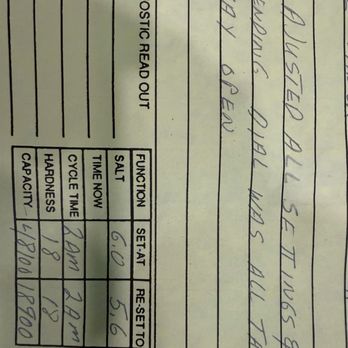 AJUSTED ALL SETTINGS &
ENDING DIAL WAS ALL TA
AY OPEN
OSTIC READ OUT
FUNCTION SET-AT RE-SET TO
SALT 6.0 5.6
TIME NOW
CYCLE TIME 2AM 2AM
HARDNESS 18 18
CAPACITY 48100 18900